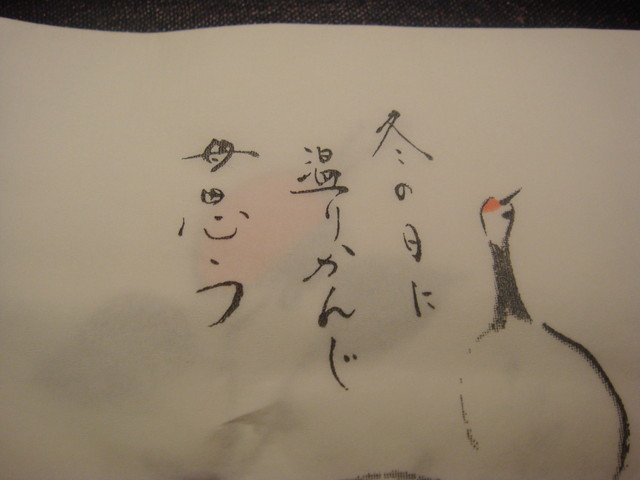 冬の日に
温りかんじ
母思う